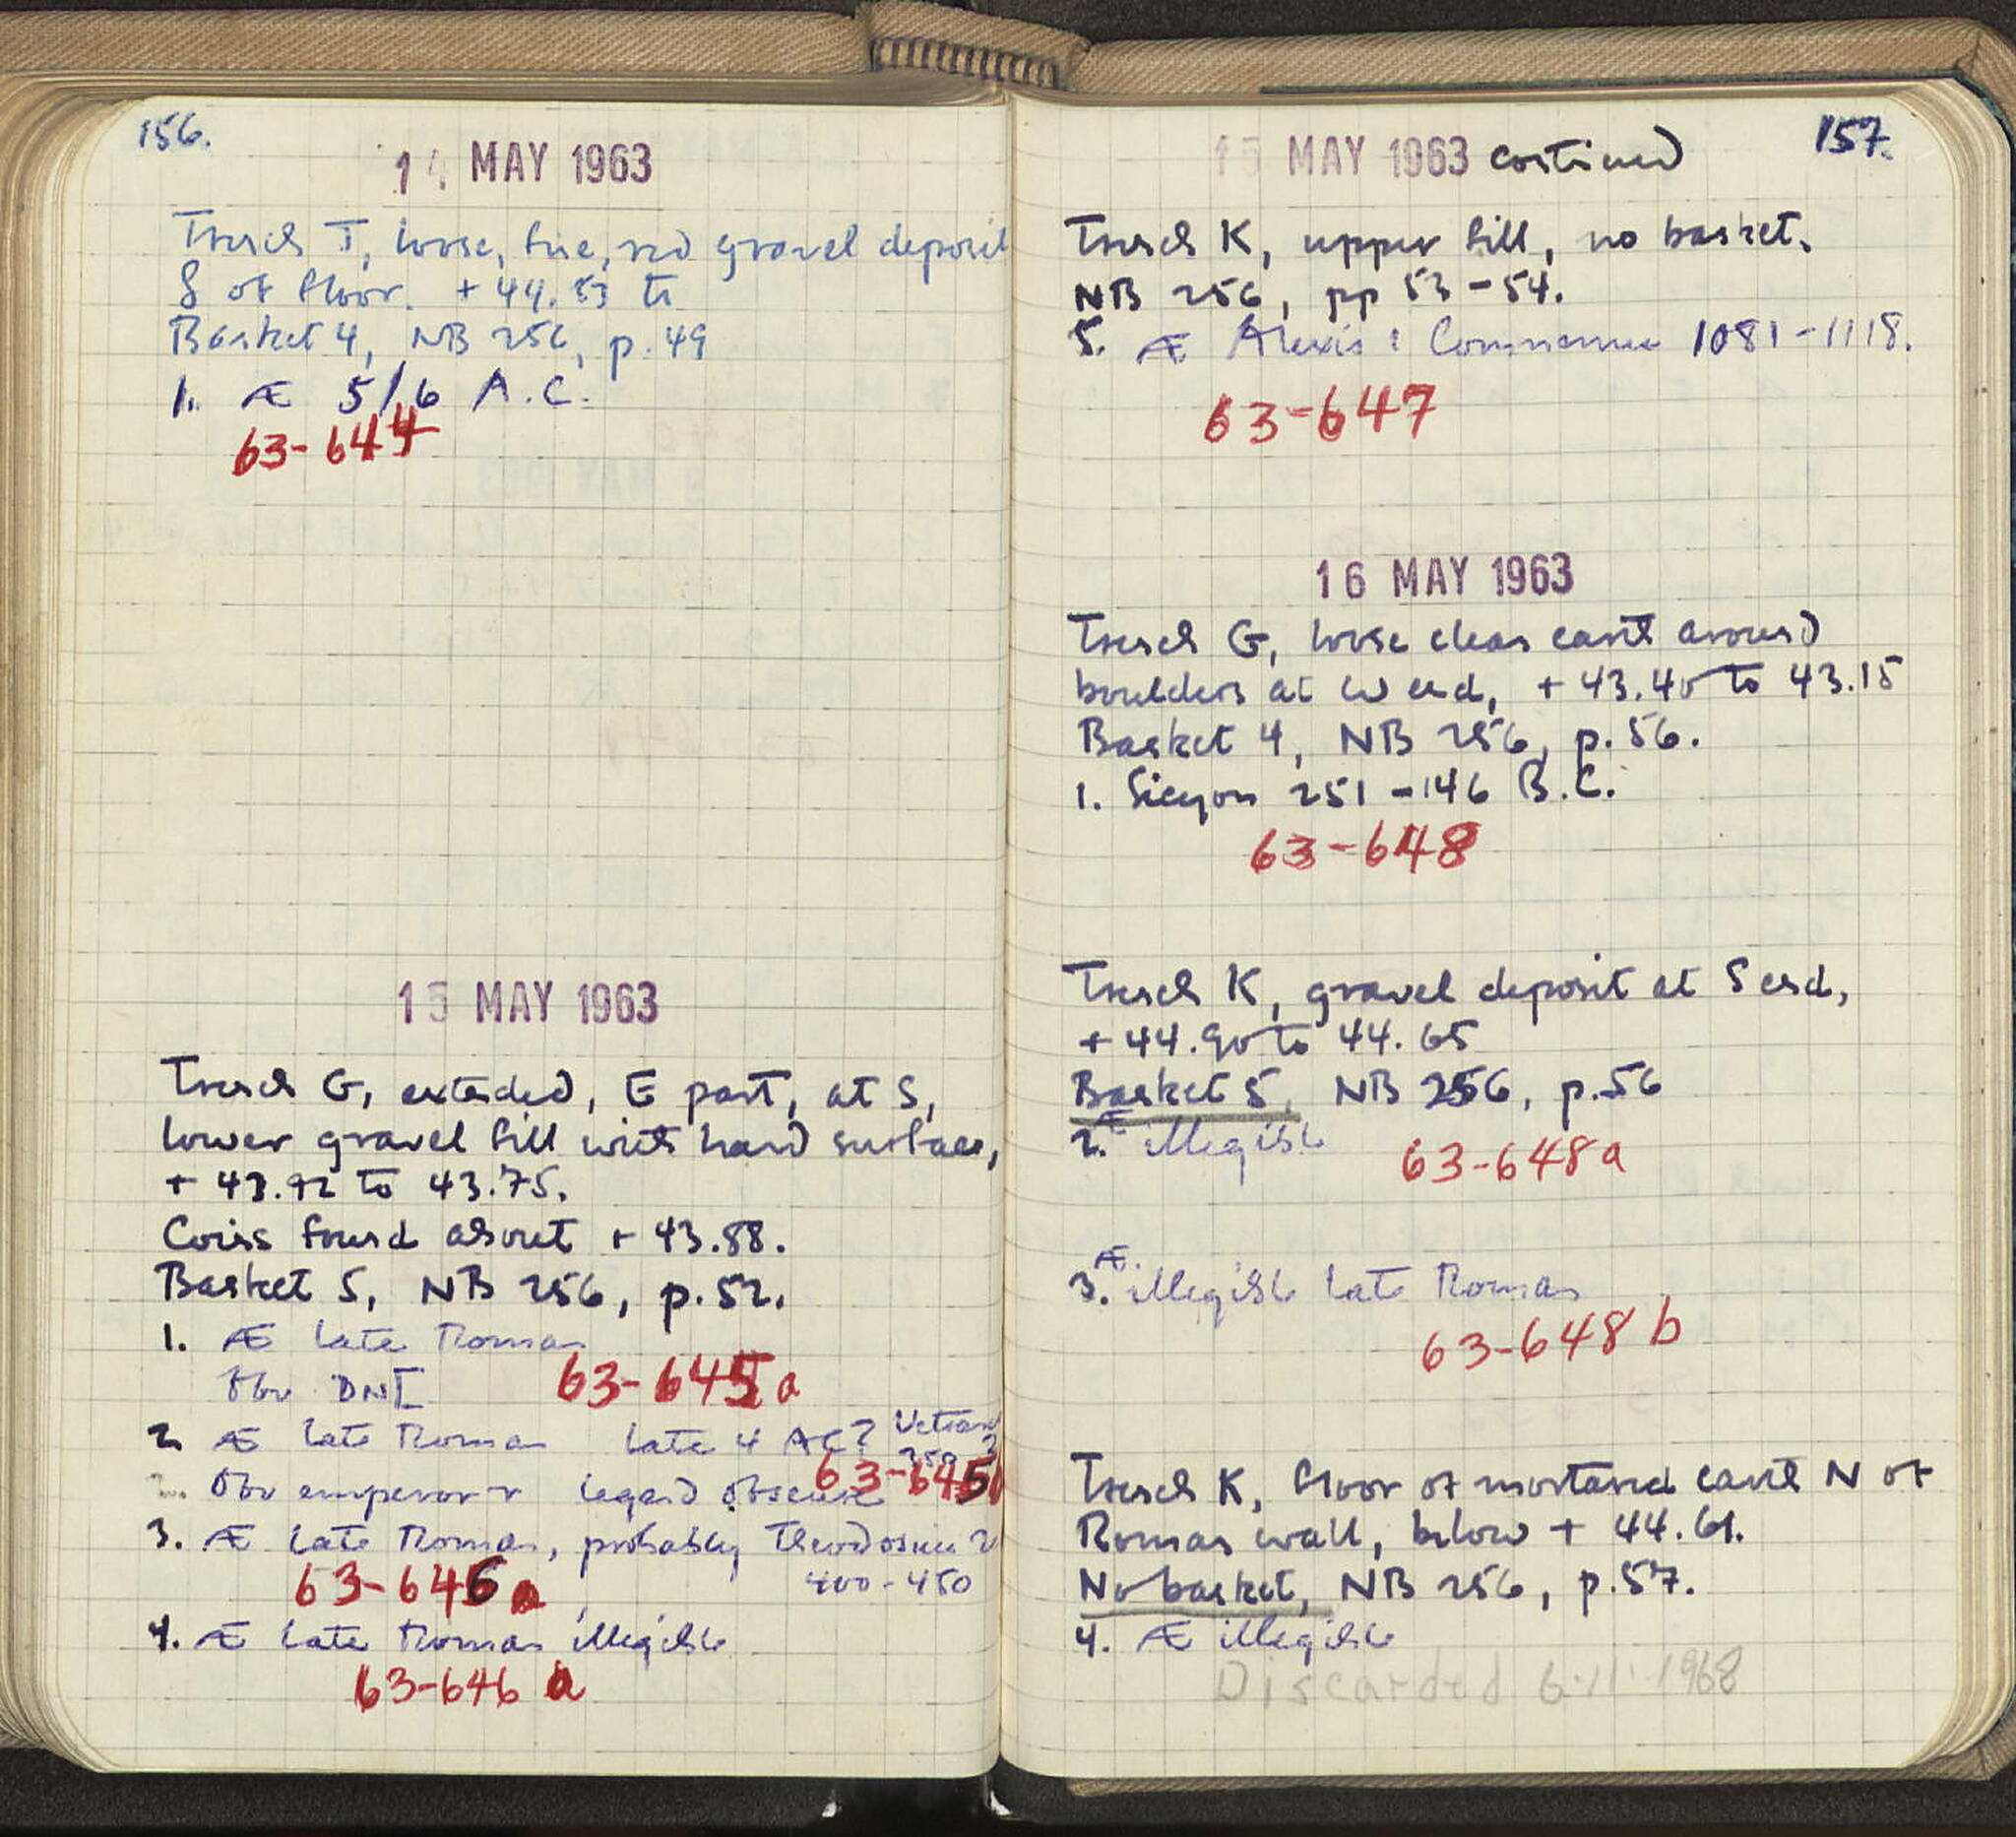 156.
14 MAY 1963
Trench I, loose, fine, red gravel deposit
S of floor. + 44.53 to
Basket 4, NB 256, p. 49
1. Æ 5/6 A.C.
63-644
15 MAY 1963
Trench G, extended, E part, at S,
lower gravel fill with hard surface,
+ 43.92 to 43.75.
Coins found about + 43.88.
Basket 5, NB 256, p. 52.
1. Æ late Roman
Obv DNI
63-645 a
2. Æ late Roman late 4 AC? Vetranio
350?
Obv emperor r legend obscure
63-645
3. Æ late Roman, probably Theodosius 2
400-450
63-646 a
4. Æ late Roman illegible
63-646 a
157.
15 MAY 1963 continued
Trench K, upper fill, no basket.
NB 256, pp 53-54.
5. Æ Alexis I Comnenus 1081-1118.
63-647
16 MAY 1963
Trench G, loose clean earth around
boulders at W end, + 43.40 to 43.15
Basket 4, NB 256, p. 56.
1. Sicyon 251-146 B.C.
63-648
Trench K, gravel deposit at S end,
+ 44.90 to 44.65
Basket 5, NB 256, p. 56
2. Æ illegible
63-648 a
3. Æ. illegible late Roman
63-648 b
Trench K, floor of mortared earth N of
Roman wall, below + 44.61.
No basket, NB 256, p. 57.
4. Æ illegible
Discarded 6.11.1968